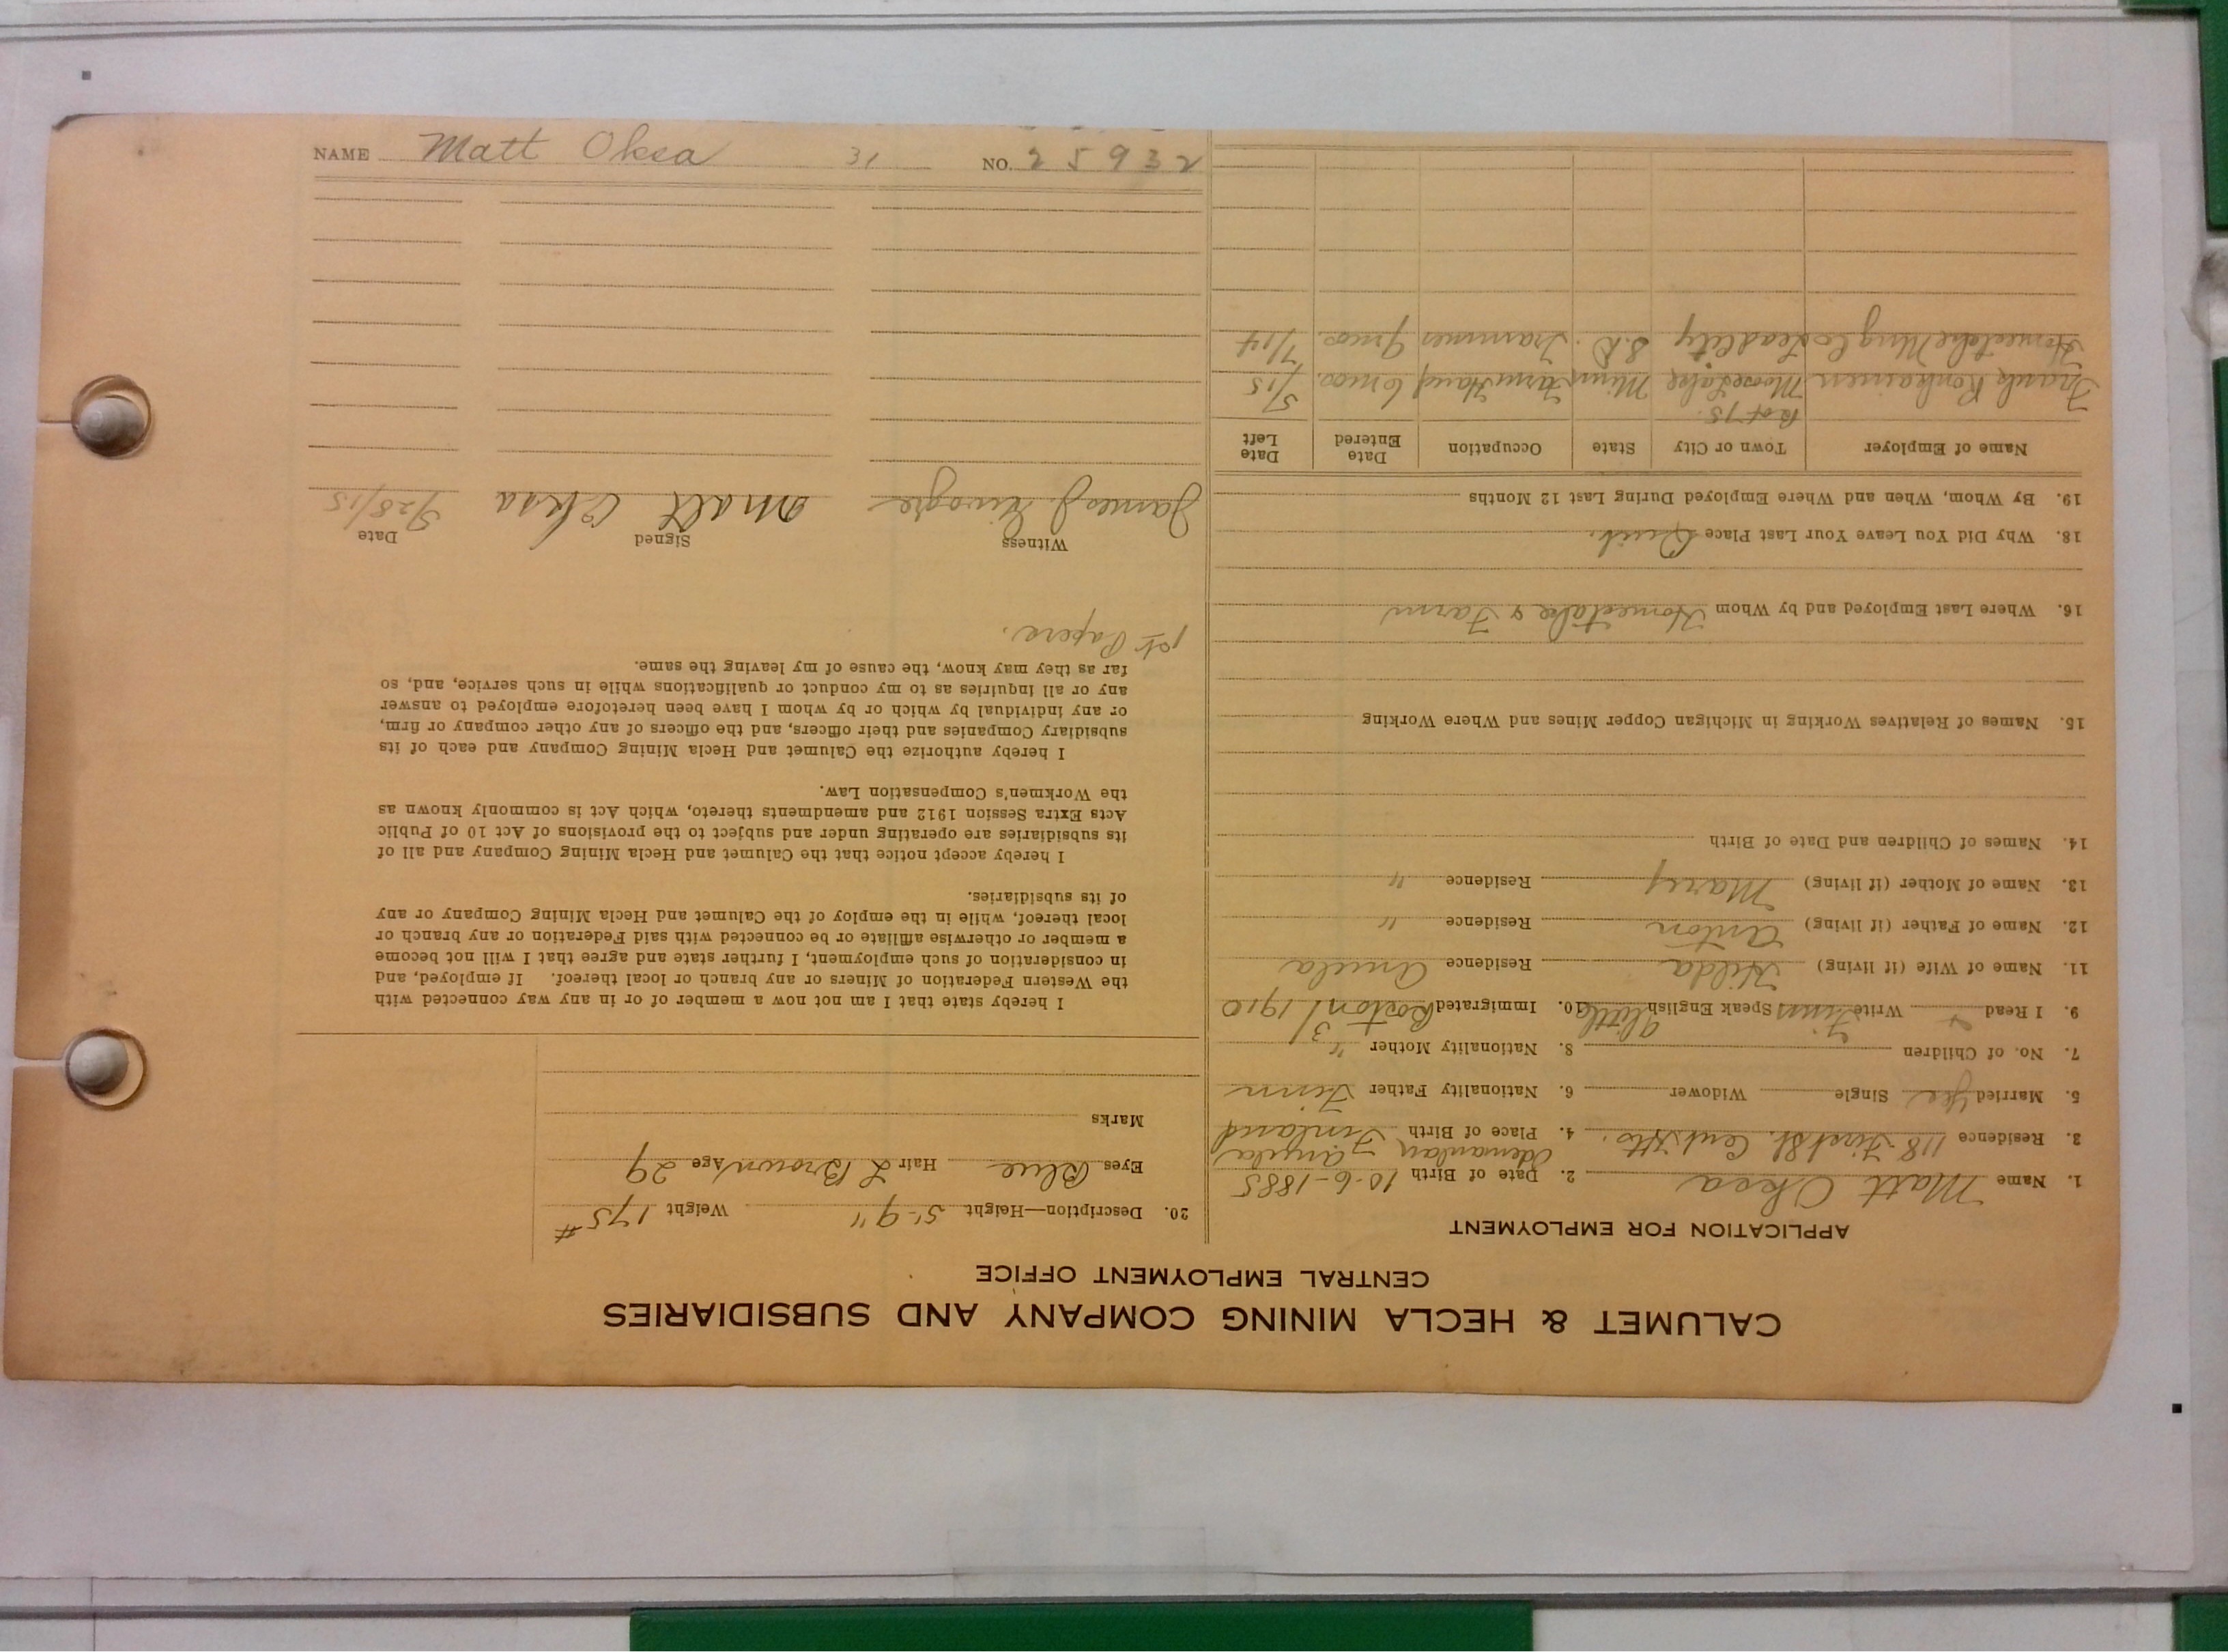 CALUMET & HECLA MINING COMPANY AND SUBSIDIARIES
CENTRAL EMPLOYMENT OFFICE
APPLICATION FOR EMPLOYMENT
1. Name Matt Oksa 2. Date of Birth 10-6-1885
3. Residence 118 First St. Cent. Hts. 4. Place of Birth Finland
5. Married Yes Single Widower 6. Nationality Father Finn
7. No. of Children 8. Nationality Mother "
9. I Read Write Finn Speak English little 10. Immigrated Boston 3/1910
11. Name of Wife (if living) Hilda Residence
12. Name of Father (if living) Anton Residence "
13. Name of Mother (if living) Mary Residence "
14. Names of Children and Date of Birth
15. Names of Relatives Working in Michigan Copper Mines and Where Working
16. Where Last Employed and by Whom Homestake & Farm
18. Why Did You Leave Your Last Place Quit.
19. By Whom, When and Where Employed During Last 12 Months
Name of Employer Town or City State Occupation Date Entered Date Left
Frank Moose Lake Minn Farm Hand 6 mos. 5/15
Homestake Mng Co Lead City S.D. Trammer 9 mos. 7/14
20. Description—Height 5'-9" Weight 175#
Eyes Blue Hair L Brown Age 29
Marks
I hereby state that I am not now a member of or in any way connected with
the Western Federation of Miners or any branch or local thereof. If employed, and
in consideration of such employment, I further state and agree that I will not become
a member or otherwise affiliate or be connected with said Federation or any branch or
local thereof, while in the employ of the Calumet and Hecla Mining Company or any
of its subsidiaries.
I hereby accept notice that the Calumet and Hecla Mining Company and all of
its subsidiaries are operating under and subject to the provisions of Act 10 of Public
Acts Extra Session 1912 and amendments thereto, which Act is commonly known as
the Workmen's Compensation Law.
I hereby authorize the Calumet and Hecla Mining Company and each of its
subsidiary Companies and their officers, and the officers of any other company or firm,
or any individual by which or by whom I have been heretofore employed to answer
any or all inquiries as to my conduct or qualifications while in such service, and, so
far as they may know, the cause of my leaving the same.
1st Papers.
Witness Signed Date
James J. Matt Oksa
NAME Matt Oksa 31 NO. 25932